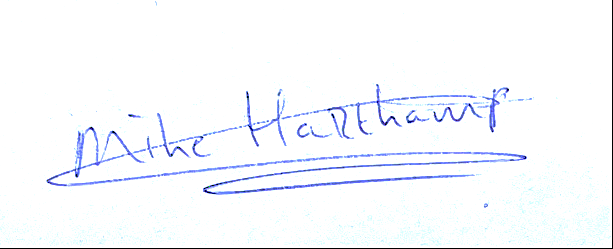 Mike Hartkamp